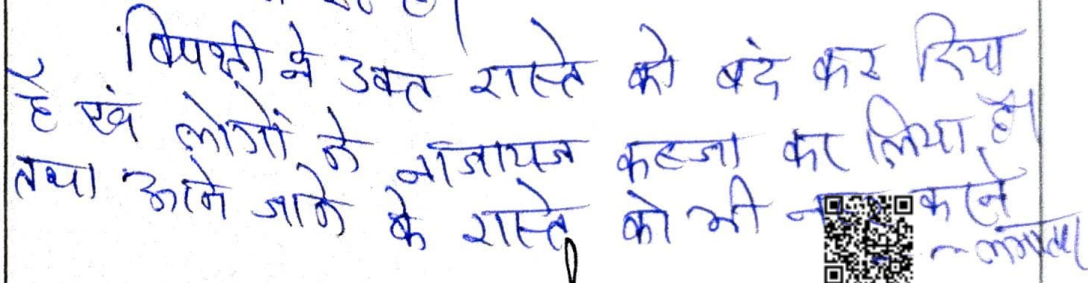 विपक्षी ने उक्त रास्ते को बंद कर दिया
है एवं लोगों ने नाजायज कब्जा कर लिया है।
तथा आने जाने के रास्ते को भी करने